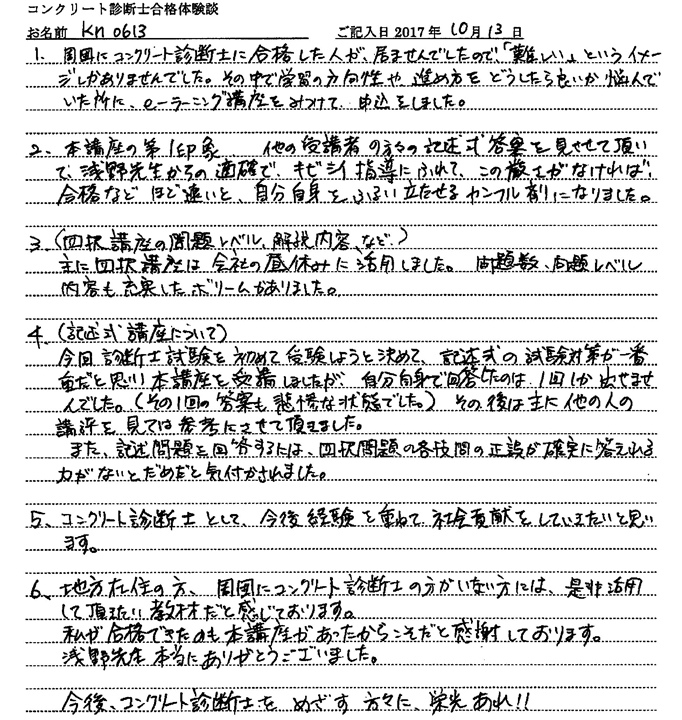 コンクリート診断士合格体験談
お名前 kn0613 ご記入日 2017年 10月 13日
1. 周囲にコンクリート診断士に合格した人が、居ませんでしたので、「難しい」というイメー
ジしかありませんでした。その中で学習の方向性や進め方をどうしたら良いか悩んで
いた所に、e-ラーニング講座をみつけて、申込をしました。
2. 本講座の第1印象 他の受講者の方々の記述式答案を見させて頂い
て、浅野先生からの適確で、キビシイ指導にふれて、この厳しさがなければ、
合格など ほど遠いと、自分自身をふるい立たせるカンフル剤になりました。
3. (四択講座の問題レベル、解説内容、など、)
主に四択講座は会社の昼休みに活用しました。 問題数、問題レベル
内容も充実したボリームがありました。
4. (記述式講座について)
今回診断士試験を初めて受験しようと決めて、記述式の試験対策が一番
重だと思い本講座を受講しましたが、自分自身で回答したのは、1回しか出せませ
んでした。(その1回の答案も悲惨な状態でした。) その後は主に他の人の
講評を見ては参考にさせて頂きました。
また、記述問題を回答するには、四択問題の各枝問の正誤が確実に答えれる
力がないとだめだと気付かされました。
5. コンクリート診断士として、今後経験を重ねて社会貢献をしていきたいと思い
ます。
6. 地方在住の方、周囲にコンクリート診断士の方がいない方には、是非活用
して頂きたい教材だと感じております。
私が合格できたのも本講座があったからこそだと感謝しております。
浅野先生本当にありがとうございました。
今後、コンクリート診断士をめざす方々に、栄光あれ!!